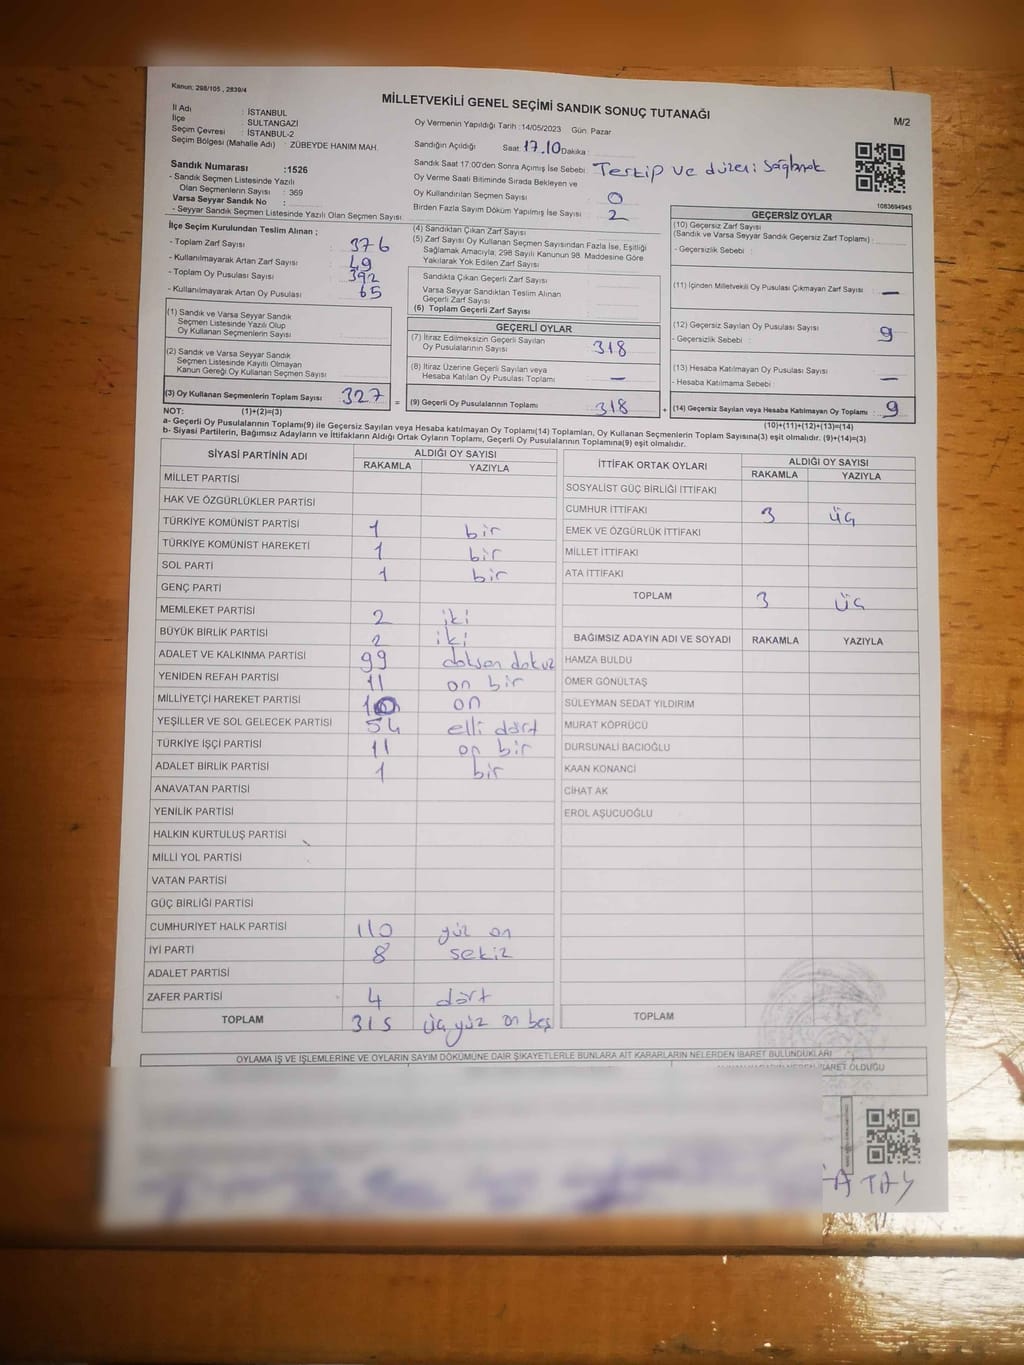 Kanun: 298/105 , 2839/4
MİLLETVEKİLİ GENEL SEÇİMİ SANDIK SONUÇ TUTANAĞI
M/2
İl Adı : İSTANBUL
İlçe : SULTANGAZİ
Seçim Çevresi : İSTANBUL-2
Seçim Bölgesi (Mahalle Adı) : ZÜBEYDE HANIM MAH.
Oy Vermenin Yapıldığı Tarih :14/05/2023 Gün: Pazar
Sandığın Açıldığı Saat 17.10 Dakika :
Sandık Saat 17:00'den Sonra Açımış İse Sebebi : Tertip ve düzeni sağlamak
Oy Verme Saati Bitiminde Sırada Bekleyen ve
Oy Kullandırılan Seçmen Sayısı : 0
Birden Fazla Sayım Döküm Yapılmış İse Sayısı : 2
Sandık Numarası :1526
- Sandık Seçmen Listesinde Yazılı
Olan Seçmenlerin Sayısı : 369
Varsa Seyyar Sandık No :
- Seyyar Sandık Seçmen Listesinde Yazılı Olan Seçmen Sayısı:
1083694945
İlçe Seçim Kurulundan Teslim Alınan ;
- Toplam Zarf Sayısı : 376
- Kullanılmayarak Artan Zarf Sayısı : 49
- Toplam Oy Pusulası Sayısı : 392
- Kullanılmayarak Artan Oy Pusulası : 65
(1) Sandık ve Varsa Seyyar Sandık
Seçmen Listesinde Yazılı Olup
Oy Kullanan Seçmenlerin Sayısı :
(2) Sandık ve Varsa Seyyar Sandık
Seçmen Listesinde Kayıtlı Olmayan
Kanun Gereği Oy Kullanan Seçmen Sayısı :
(3) Oy Kullanan Seçmenlerin Toplam Sayısı : 327
(4) Sandıktan Çıkan Zarf Sayısı :
(5) Zarf Sayısı Oy Kullanan Seçmen Sayısından Fazla İse, Eşitliği
Sağlamak Amacıyla; 298 Sayılı Kanunun 98. Maddesine Göre
Yakılarak Yok Edilen Zarf Sayısı :
Sandıkta Çıkan Geçerli Zarf Sayısı :
Varsa Seyyar Sandıktan Teslim Alınan
Geçerli Zarf Sayısı :
(6) Toplam Geçerli Zarf Sayısı :
GEÇERLİ OYLAR
(7) İtiraz Edilmeksizin Geçerli Sayılan
Oy Pusulalarının Sayısı : 318
(8) İtiraz Üzerine Geçerli Sayılan veya
Hesaba Katılan Oy Pusulası Toplamı : —
= (9) Geçerli Oy Pusulalarının Toplamı : 318
GEÇERSİZ OYLAR
(10) Geçersiz Zarf Sayısı
(Sandık ve Varsa Seyyar Sandık Geçersiz Zarf Toplamı) :
- Geçersizlik Sebebi :
(11) İçinden Milletvekili Oy Pusulası Çıkmayan Zarf Sayısı : —
(12) Geçersiz Sayılan Oy Pusulası Sayısı : 9
- Geçersizlik Sebebi :
(13) Hesaba Katılmayan Oy Pusulası Sayısı : —
- Hesaba Katılmama Sebebi :
+ (14) Geçersiz Sayılan veya Hesaba Katılmayan Oy Toplamı : 9
NOT: (1)+(2)=(3)
(10)+(11)+(12)+(13)=(14)
a- Geçerli Oy Pusulalarının Toplamı(9) ile Geçersiz Sayılan veya Hesaba Katılmayan Oy Toplamı(14) Toplamları, Oy Kullanan Seçmenlerin Toplam Sayısına(3) eşit olmalıdır. (9)+(14)=(3)
b- Siyasi Partilerin, Bağımsız Adayların ve İttifakların Aldığı Ortak Oyların Toplamı, Geçerli Oy Pusulalarının Toplamına(9) eşit olmalıdır.
SİYASİ PARTİNİN ADI
ALDIĞI OY SAYISI
RAKAMLA YAZIYLA
MİLLET PARTİSİ
HAK VE ÖZGÜRLÜKLER PARTİSİ
TÜRKİYE KOMÜNİST PARTİSİ 1 bir
TÜRKİYE KOMÜNİST HAREKETİ 1 bir
SOL PARTİ 1 bir
GENÇ PARTİ
MEMLEKET PARTİSİ 2 iki
BÜYÜK BİRLİK PARTİSİ 2 iki
ADALET VE KALKINMA PARTİSİ 99 doksan dokuz
YENİDEN REFAH PARTİSİ 11 on bir
MİLLİYETÇİ HAREKET PARTİSİ 10 on
YEŞİLLER VE SOL GELECEK PARTİSİ 54 elli dört
TÜRKİYE İŞÇİ PARTİSİ 11 on bir
ADALET BİRLİK PARTİSİ 1 bir
ANAVATAN PARTİSİ
YENİLİK PARTİSİ
HALKIN KURTULUŞ PARTİSİ
MİLLİ YOL PARTİSİ
VATAN PARTİSİ
GÜÇ BİRLİĞİ PARTİSİ
CUMHURİYET HALK PARTİSİ 110 yüz on
İYİ PARTİ 8 sekiz
ADALET PARTİSİ
ZAFER PARTİSİ 4 dört
TOPLAM 315 üç yüz on beş
İTTİFAK ORTAK OYLARI
ALDIĞI OY SAYISI
RAKAMLA YAZIYLA
SOSYALİST GÜÇ BİRLİĞİ İTTİFAKI
CUMHUR İTTİFAKI 3 üç
EMEK VE ÖZGÜRLÜK İTTİFAKI
MİLLET İTTİFAKI
ATA İTTİFAKI
TOPLAM 3 üç
BAĞIMSIZ ADAYIN ADI VE SOYADI RAKAMLA YAZIYLA
HAMZA BULDU
ÖMER GÖNÜLTAŞ
SÜLEYMAN SEDAT YILDIRIM
MURAT KÖPRÜCÜ
DURSUNALİ BACIOĞLU
KAAN KONANCİ
CİHAT AK
EROL AŞUCUOĞLU
TOPLAM
OYLAMA İŞ VE İŞLEMLERİNE VE OYLARIN SAYIM DÖKÜMÜNE DAİR ŞİKAYETLERLE BUNLARA AİT KARARLARIN NELERDEN İBARET BULUNDUKLARI
İBARET OLDUĞU
ATAY